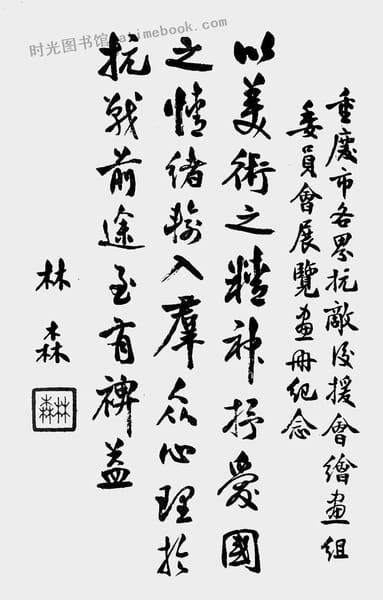 时光图书馆 atimebook.com
重慶市各界抗敵後援會繪畫組
委員會展覽畫冊紀念
以美術之精神抒愛國
之情緒輸入羣众心理於
抗戰前途至有裨益
林森
林森